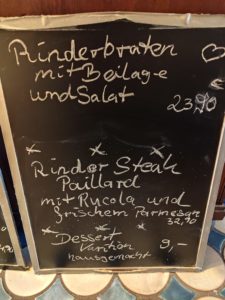 Rinderbraten
mit Beilage
und Salat
23,90
Rinder Steak
Paillard
mit Rucola und
frischem Parmesan
32,90
Dessert
hausgemacht
9,-